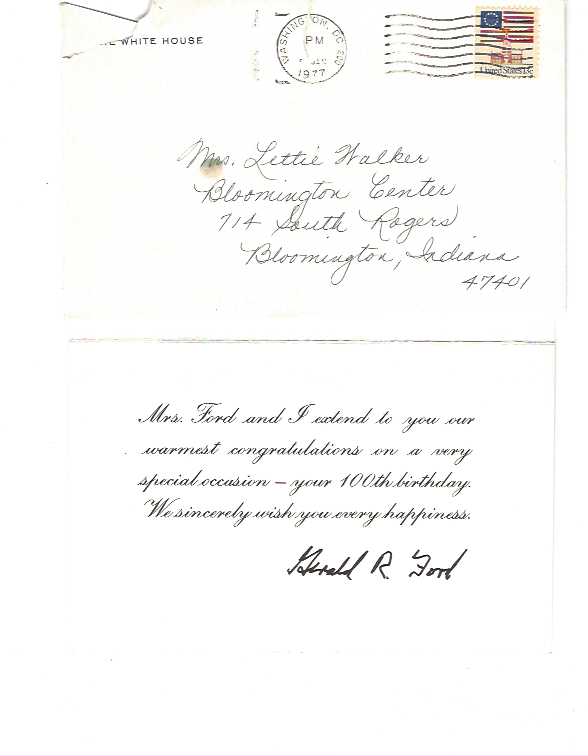 WHITE HOUSE
WASHINGTON, DC
PM
1977
United States 13c
Mrs. Lettie Walker
Bloomington Center
714 South Rogers
Bloomington, Indiana
47401
Mrs. Ford and I extend to you our
warmest congratulations on a very
special occasion – your 100th birthday.
We sincerely wish you every happiness.
Gerald R. Ford